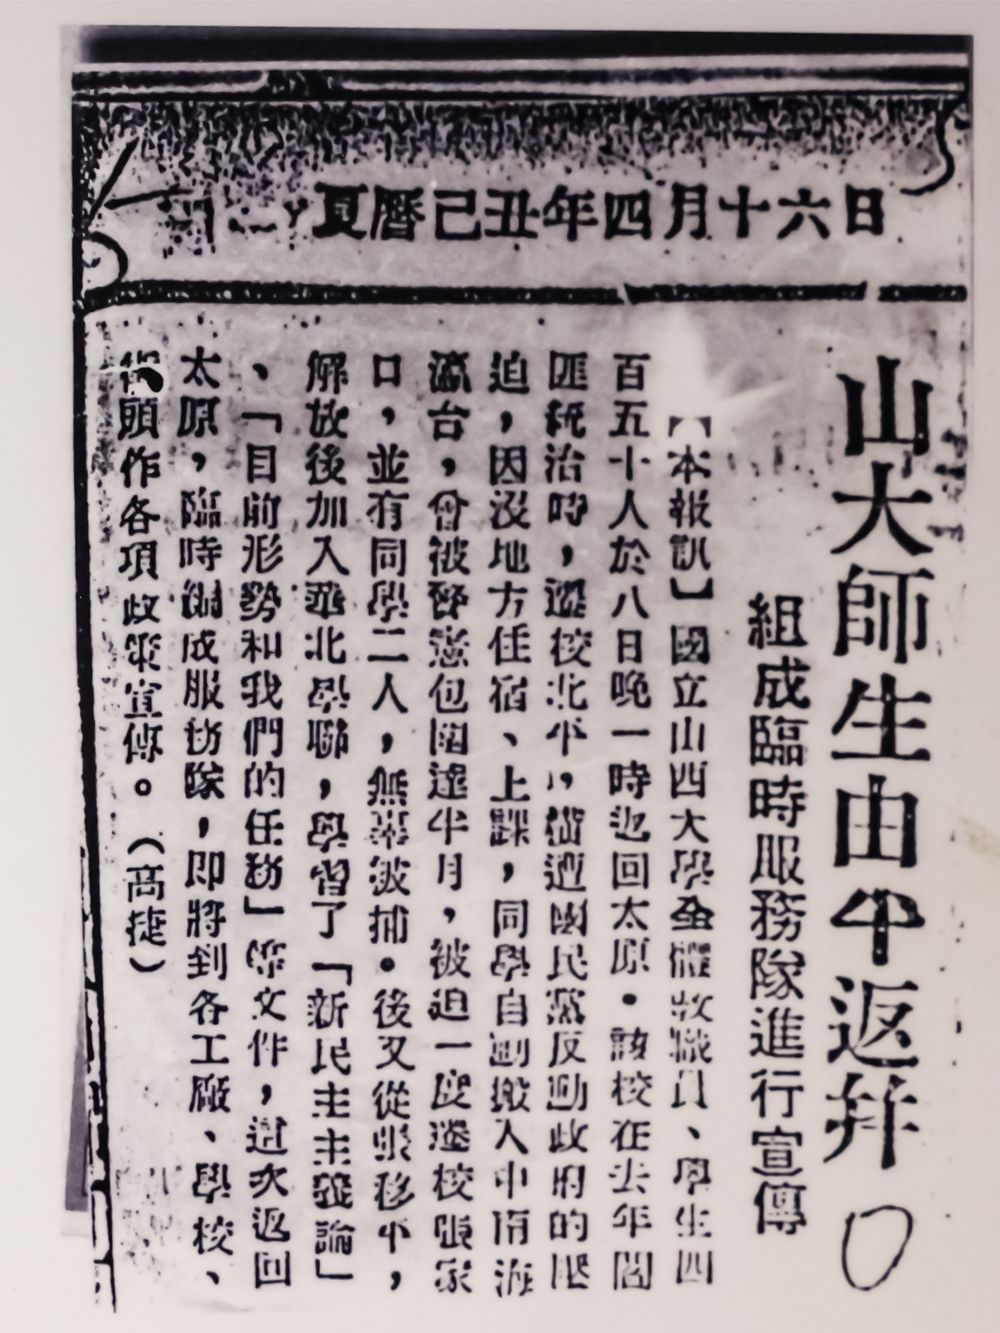 夏曆己丑年四月十六日
山大師生由平返并
組成臨時服務隊進行宣傳
【本報訊】國立山西大學全體敎職員、學生四
百五十人於八日晚一時返回太原。該校在去年閻
匪統治時，遷校北平，當遭國民黨反動政府的壓
迫，因沒地方住宿、上課，同學自動搬入中南海
瀛台，曾被警憲包圍達半月，被迫一度遷校張家
口，並有同學二人，無辜被捕。後又從張移平，
解放後加入華北學聯，學習了「新民主主義論」
、「目前形勢和我們的任務」等文件，這次返回
太原，臨時編成服務隊，即將到各工廠、學校、
街頭作各項政策宣傳。（高捷）